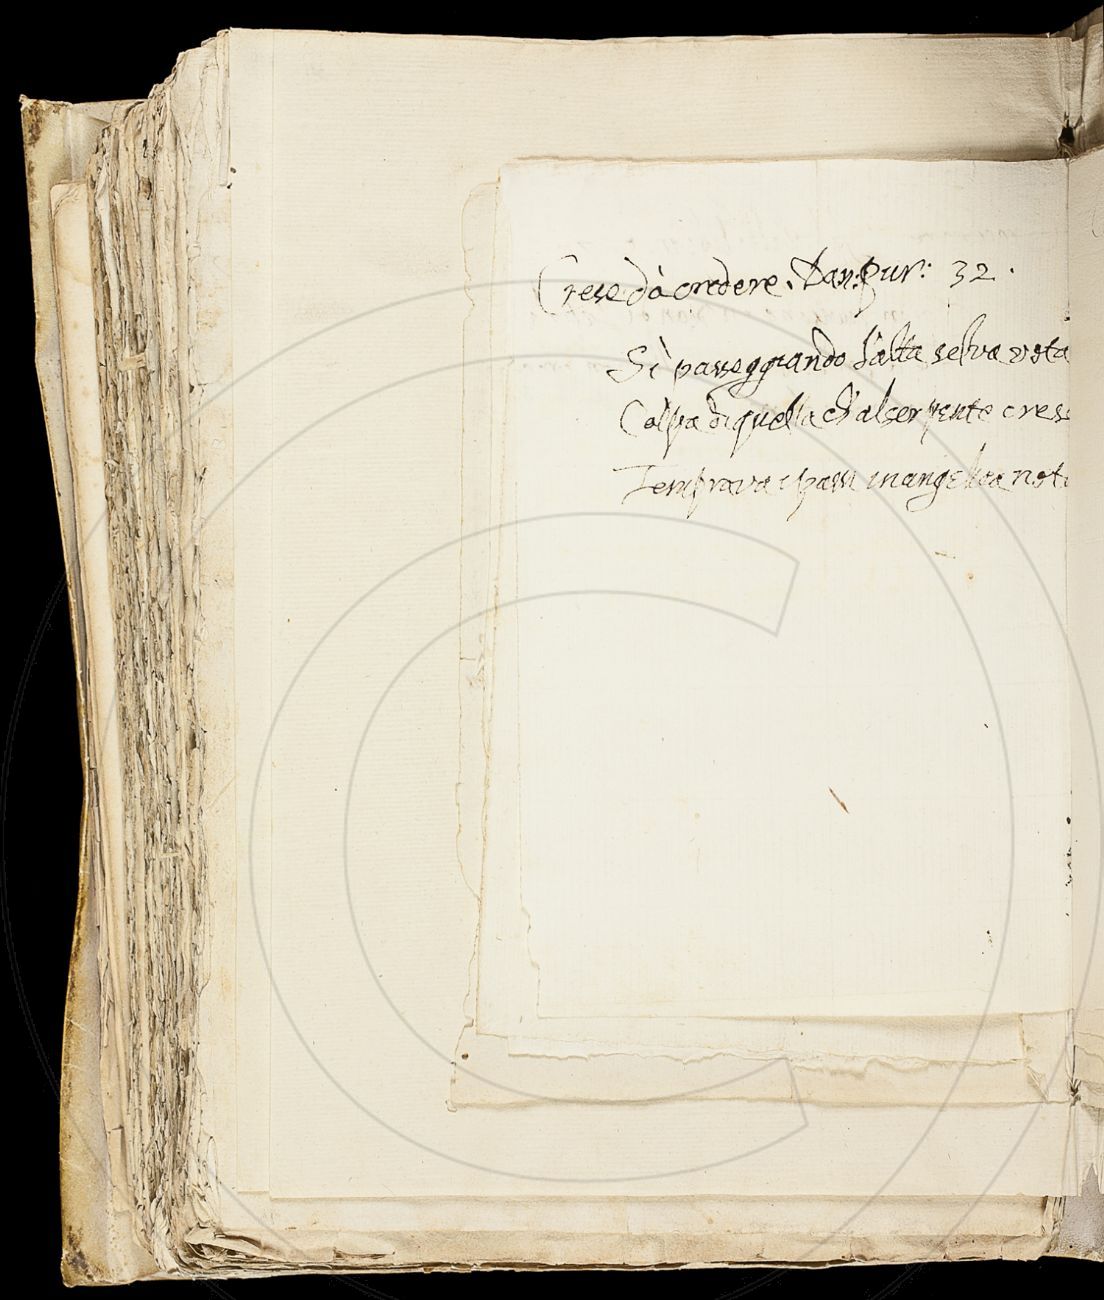 Crese dà credere. Dan: Pur: 32.
Sì passeggiando l'alta selva vota
Colpa di quella ch'al serpente crese
Temprava i passi in angelica nota